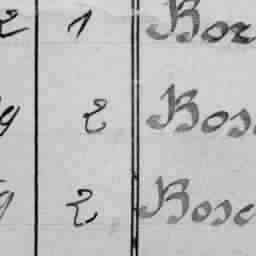 2 1 Bor
g 2 Bos
g 2 Bosc